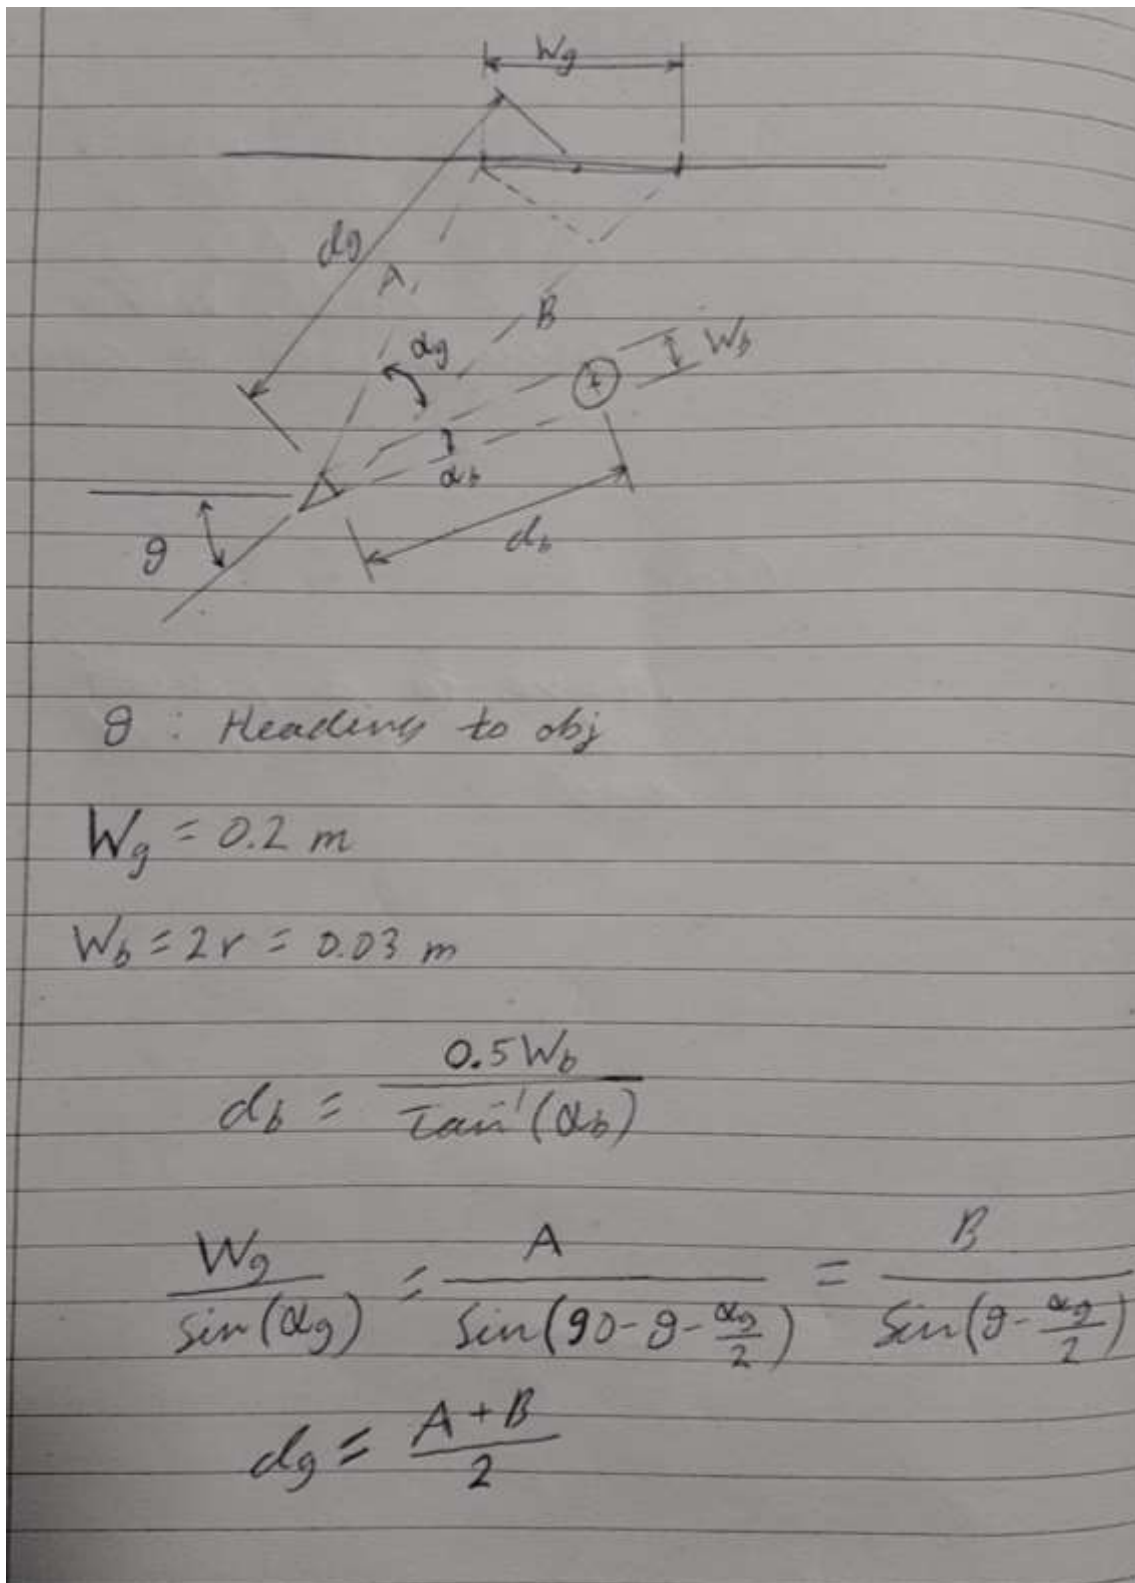 Wg
dg
A
B
αg
Wb
αb
db
θ
θ : Heading to obj
Wg = 0.2 m
Wb = 2r = 0.03 m
db = 0.5 Wb / Tan⁻¹(αb)
Wg / Sin(αg) = A / Sin(90-θ-αg/2) = B / Sin(θ-αg/2)
dg = A + B / 2